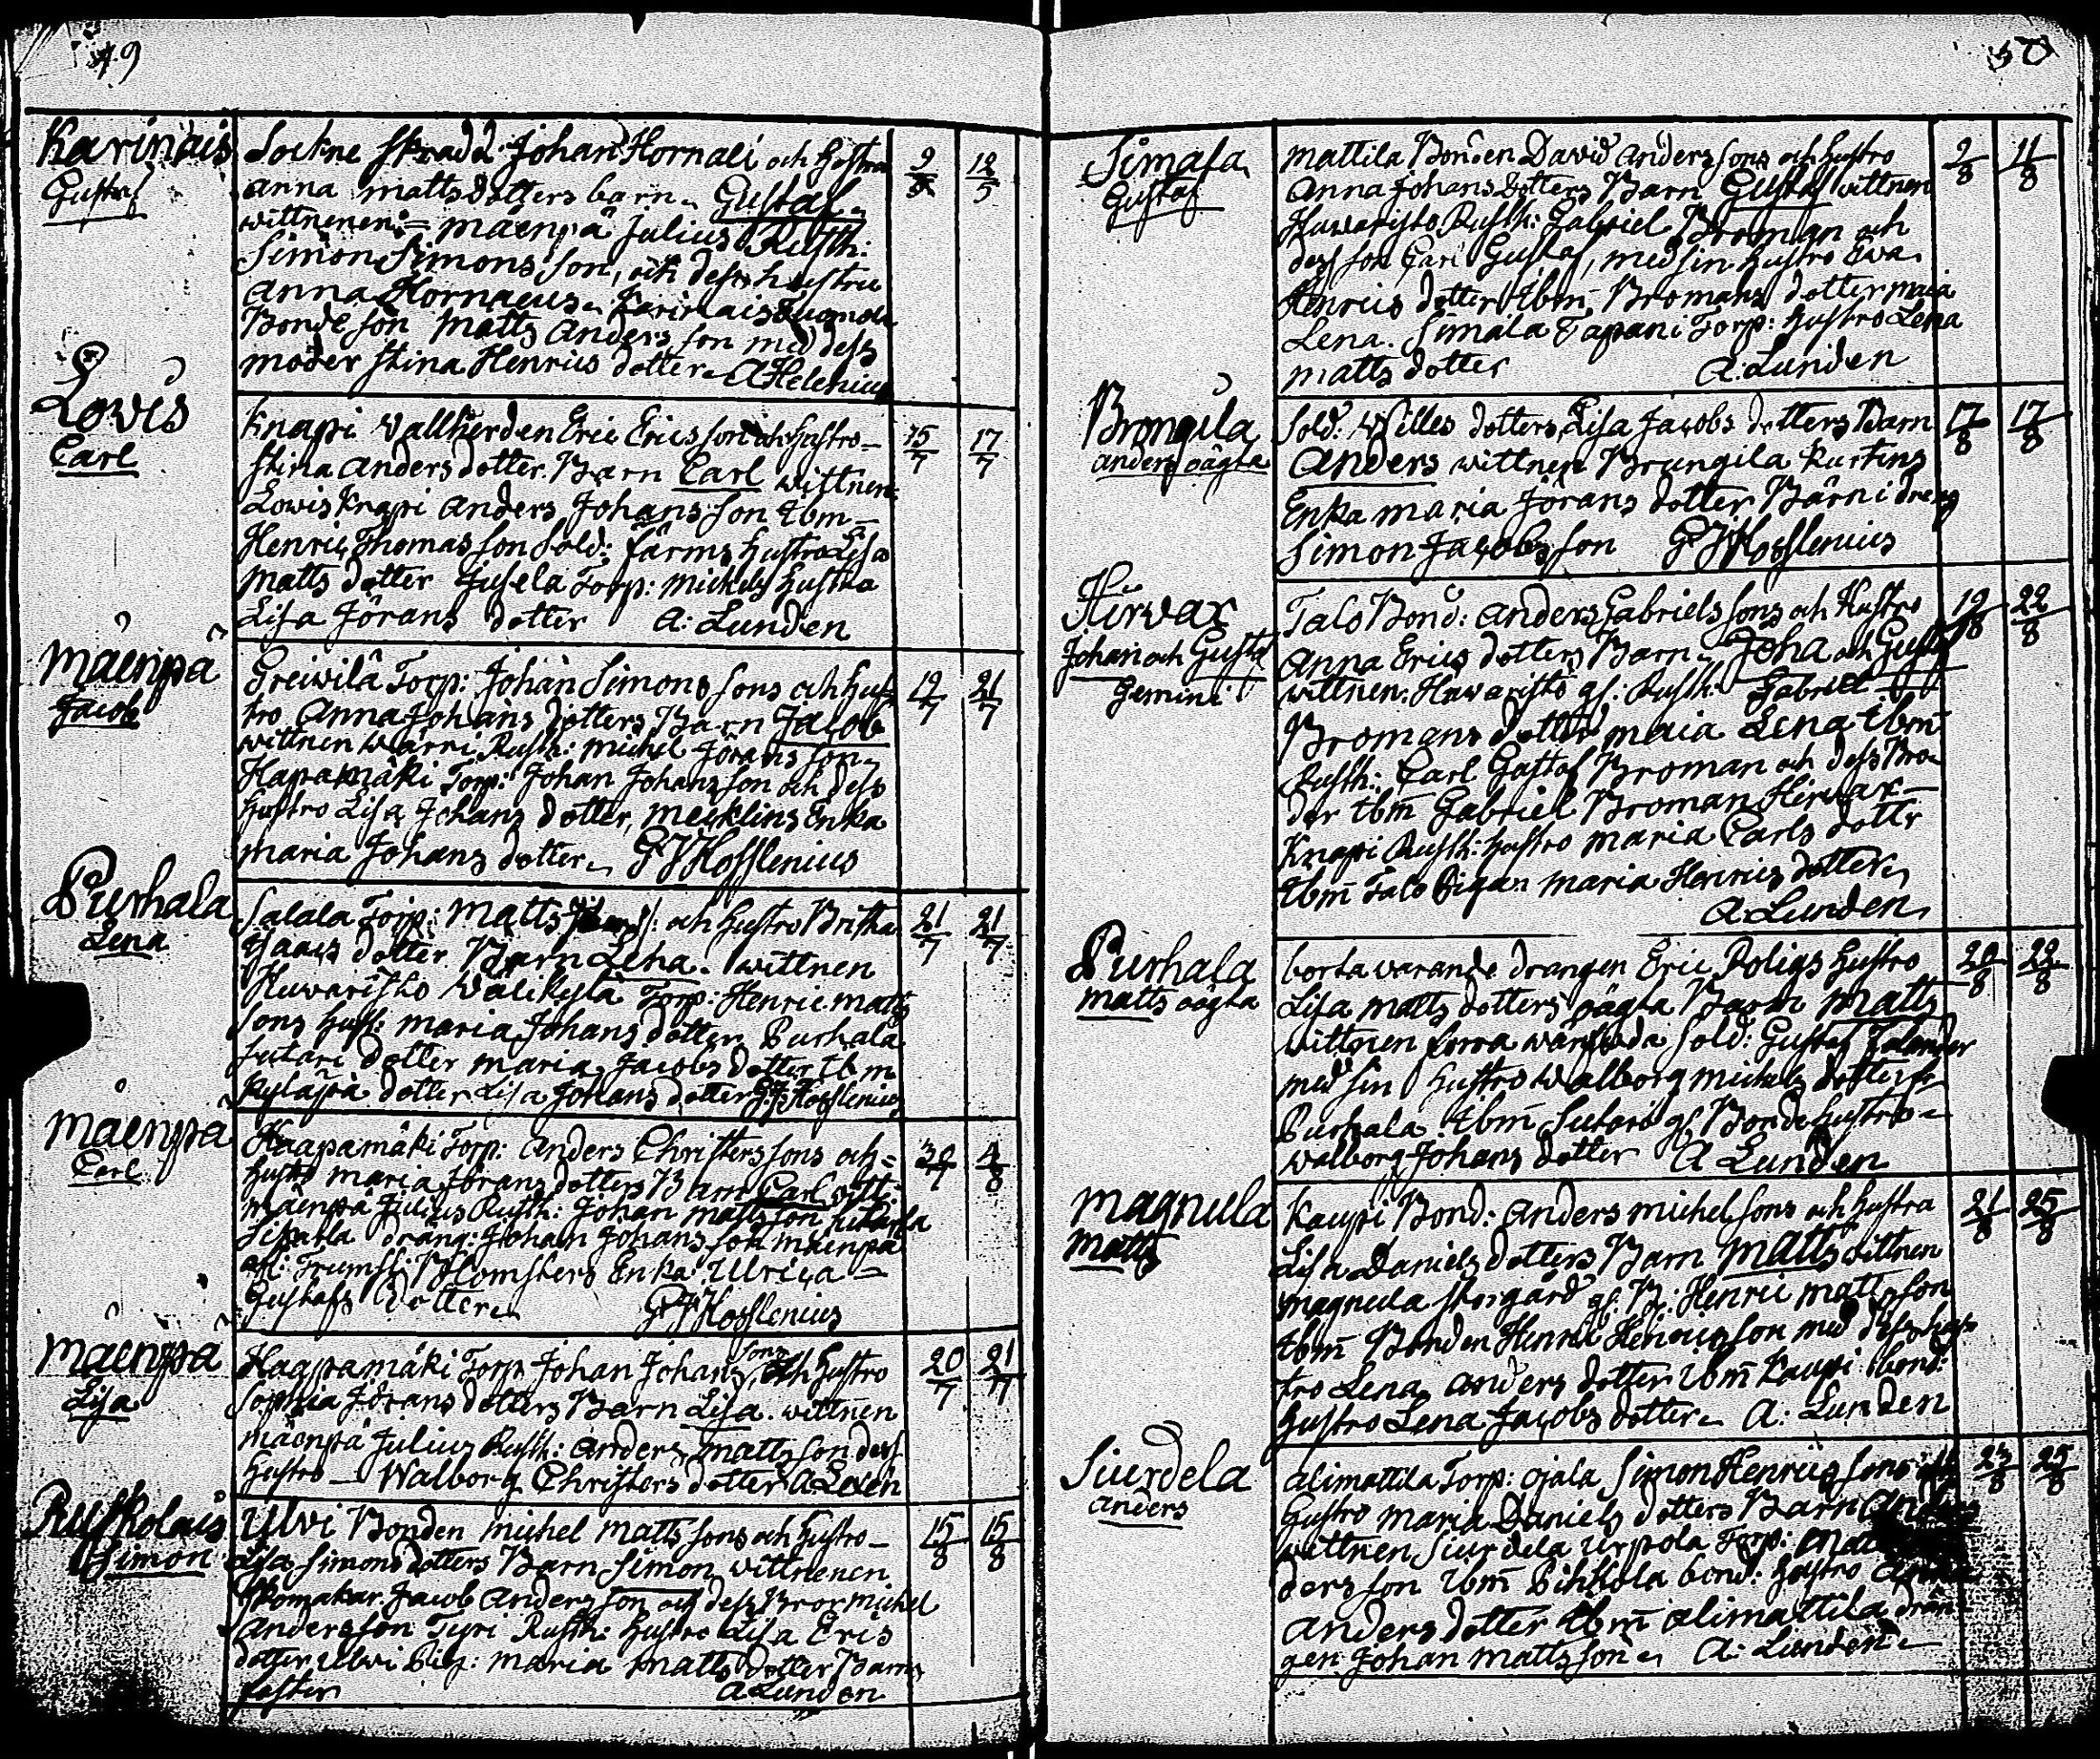 49
Karinais
Gustaf
Sockne Skradd: Johan Hornali och hustru
Anna Mattsdotters barn. Gustaf.
wittnenen: Mäenpä Julius Rusth:
Simon Simons son, och dess hustru
Anna Hornaeus. Karinais
Bonde son Matts Anders son med dess
moder Stina Henrics dotter. A Helenius
9/5
12/5
Lowis
Carl
Knapi Vallherden Eric Ericsson och hustro
Stina Anders dotter. Barn Carl wittnen
Lowis Knapi Anders Johans son Ibm
Henric Thomas son Sold: Färms hustro Lisa
Matts dotter Jusela Torp: Michels hustra
Lisa Jörans dotter A: Lunden
15/7
17/7
Mäenpä
Jacob
Greiwilä Torp: Johan Simons sons och hus
tro Anna Johans dotters Barn Jacob
wittnen Wärri Rusth: Michel Jörans son
Hapamäki Torp: Johan Johans son och dess
hustro Lisa Johans dotter, Mecklins Enka
Maria Johans dotter. G J Hofslenius
19/7
21/7
Purhala
Lena
Salala Torp: Matts och hustro Britha
Isaacs dotter Barn Lena. wittnen
Huwaristo Wälikylä Torp: Henric Matts
sons hust: Maria Johans dotter Purhala
Sutari dotter Maria Jacobs dotter Ibm
Kyläpä dotter Lisa Johans dotter G J Hofslenius
21/7
21/7
Mäenpä
Carl
Haapamäki Torp: Anders Christers sons och
hustro Maria Jörans dotters Barn Carl witt:
Mäenpä Julius Rusth: Johan Matts son
dräng: Johan Johans son Mäenpä
afl: Trumsl: Blomsters Enka Ulrica
Gustafs dotter G J Hofslenius
30/7
4/8
Mäenpä
Lisa
Haapamäki Torp Johan Johans sons och hustro
Sophia Jörans dotters Barn Lisa. wittnen
Mäenpä Julius Rusth: Anders Matts son dess
hustro Walborg Christers dotter A Lexen
20/7
21/7
Ruskolais
Simon
Ylwi Bonden Michel Matts sons och hustro
Lisa Simons dotters Barn Simon wittnenen
Skomakar. Jacob Anders son och dess Bror Michel
Andersson Tyri Rusth: hustro Lisa Erics
dotter Ulwi Pig: Maria Matts dotter Barns
faster A Lunden
15/8
15/8
50
Simala
Gustaf
Mattila Bonden David Anders sons och hustro
Anna Johans dotters Barn Gustaf wittnen
Huwaristo Rusth: Gabriel Broman och
dess son Carl Gustaf, med sin hustro Ewa
Henrics dotter Ibm Bromans dotter Maia
Lena. Simala Tapani Torp: hustro Lena
Matts dotter A. Lunden
2/8
11/8
Brongila
Anders oägta
Sold: Willes dotters, Lisa Jacobs dotters Barn
Anders wittnen Brungila Kurtens
Enka Maria Jörans dotter Bärni dreng
Simon Jacobs son G J Hofslenius
17/8
17/8
Hirwax
Johan och Gustaf
Gemini
Talo Bond: Anders Gabriels sons och Hustro
Anna Erics dotters Barn Joha och Gustaf
wittnen. Huwaristo gl: Rusth: Gabriel
Bromans dotter Maia Lena Ibm
Rusth: Carl Gustaf Broman och dess Bro
der Ibm Gabriel Broman Hirwax
Knapi Rusth: hustro Maria Carls dottr
Ibm Talo Pigan Maria Henrics dotter
A. Lunden
19/8
22/8
Purhala
Matts oägta
borta warande drangen Eric Poligs hustro
Lisa Matts dotters oägta Barn Matts
wittnen forra Sold: Gustaf
med sin hustro Walborg Michels dotter
Purhala Ibm Sutari gl. Bonde hustro
Walborg Johans dotter A Lunden
20/8
22/8
Magnula
Matts
Kaupi Bond: Anders Michels sons och hustra
Lisa Daniels dotters Barn Matts wittnen
Magnula Storgård gl. B: Henric Matts son
Ibm Bonden Henric Henrics son med dess hus
tro Lena Anders dotter Ibm Kaupi bond:
hustro Lena Jacobs dotter A: Lunden
21/8
25/8
Siurdela
Anders
Alimattila Torp: Ojala Simon Henrics sons och
hustro Maria Daniels dotters Barn Anders
wittnen Siurdela Urpola Torp:
ders son Ibm Pihkola bond: hustro Anna
Anders dotter Ibm Alimattila drän
gen Johan Mattsson A: Lunden
23/8
25/8